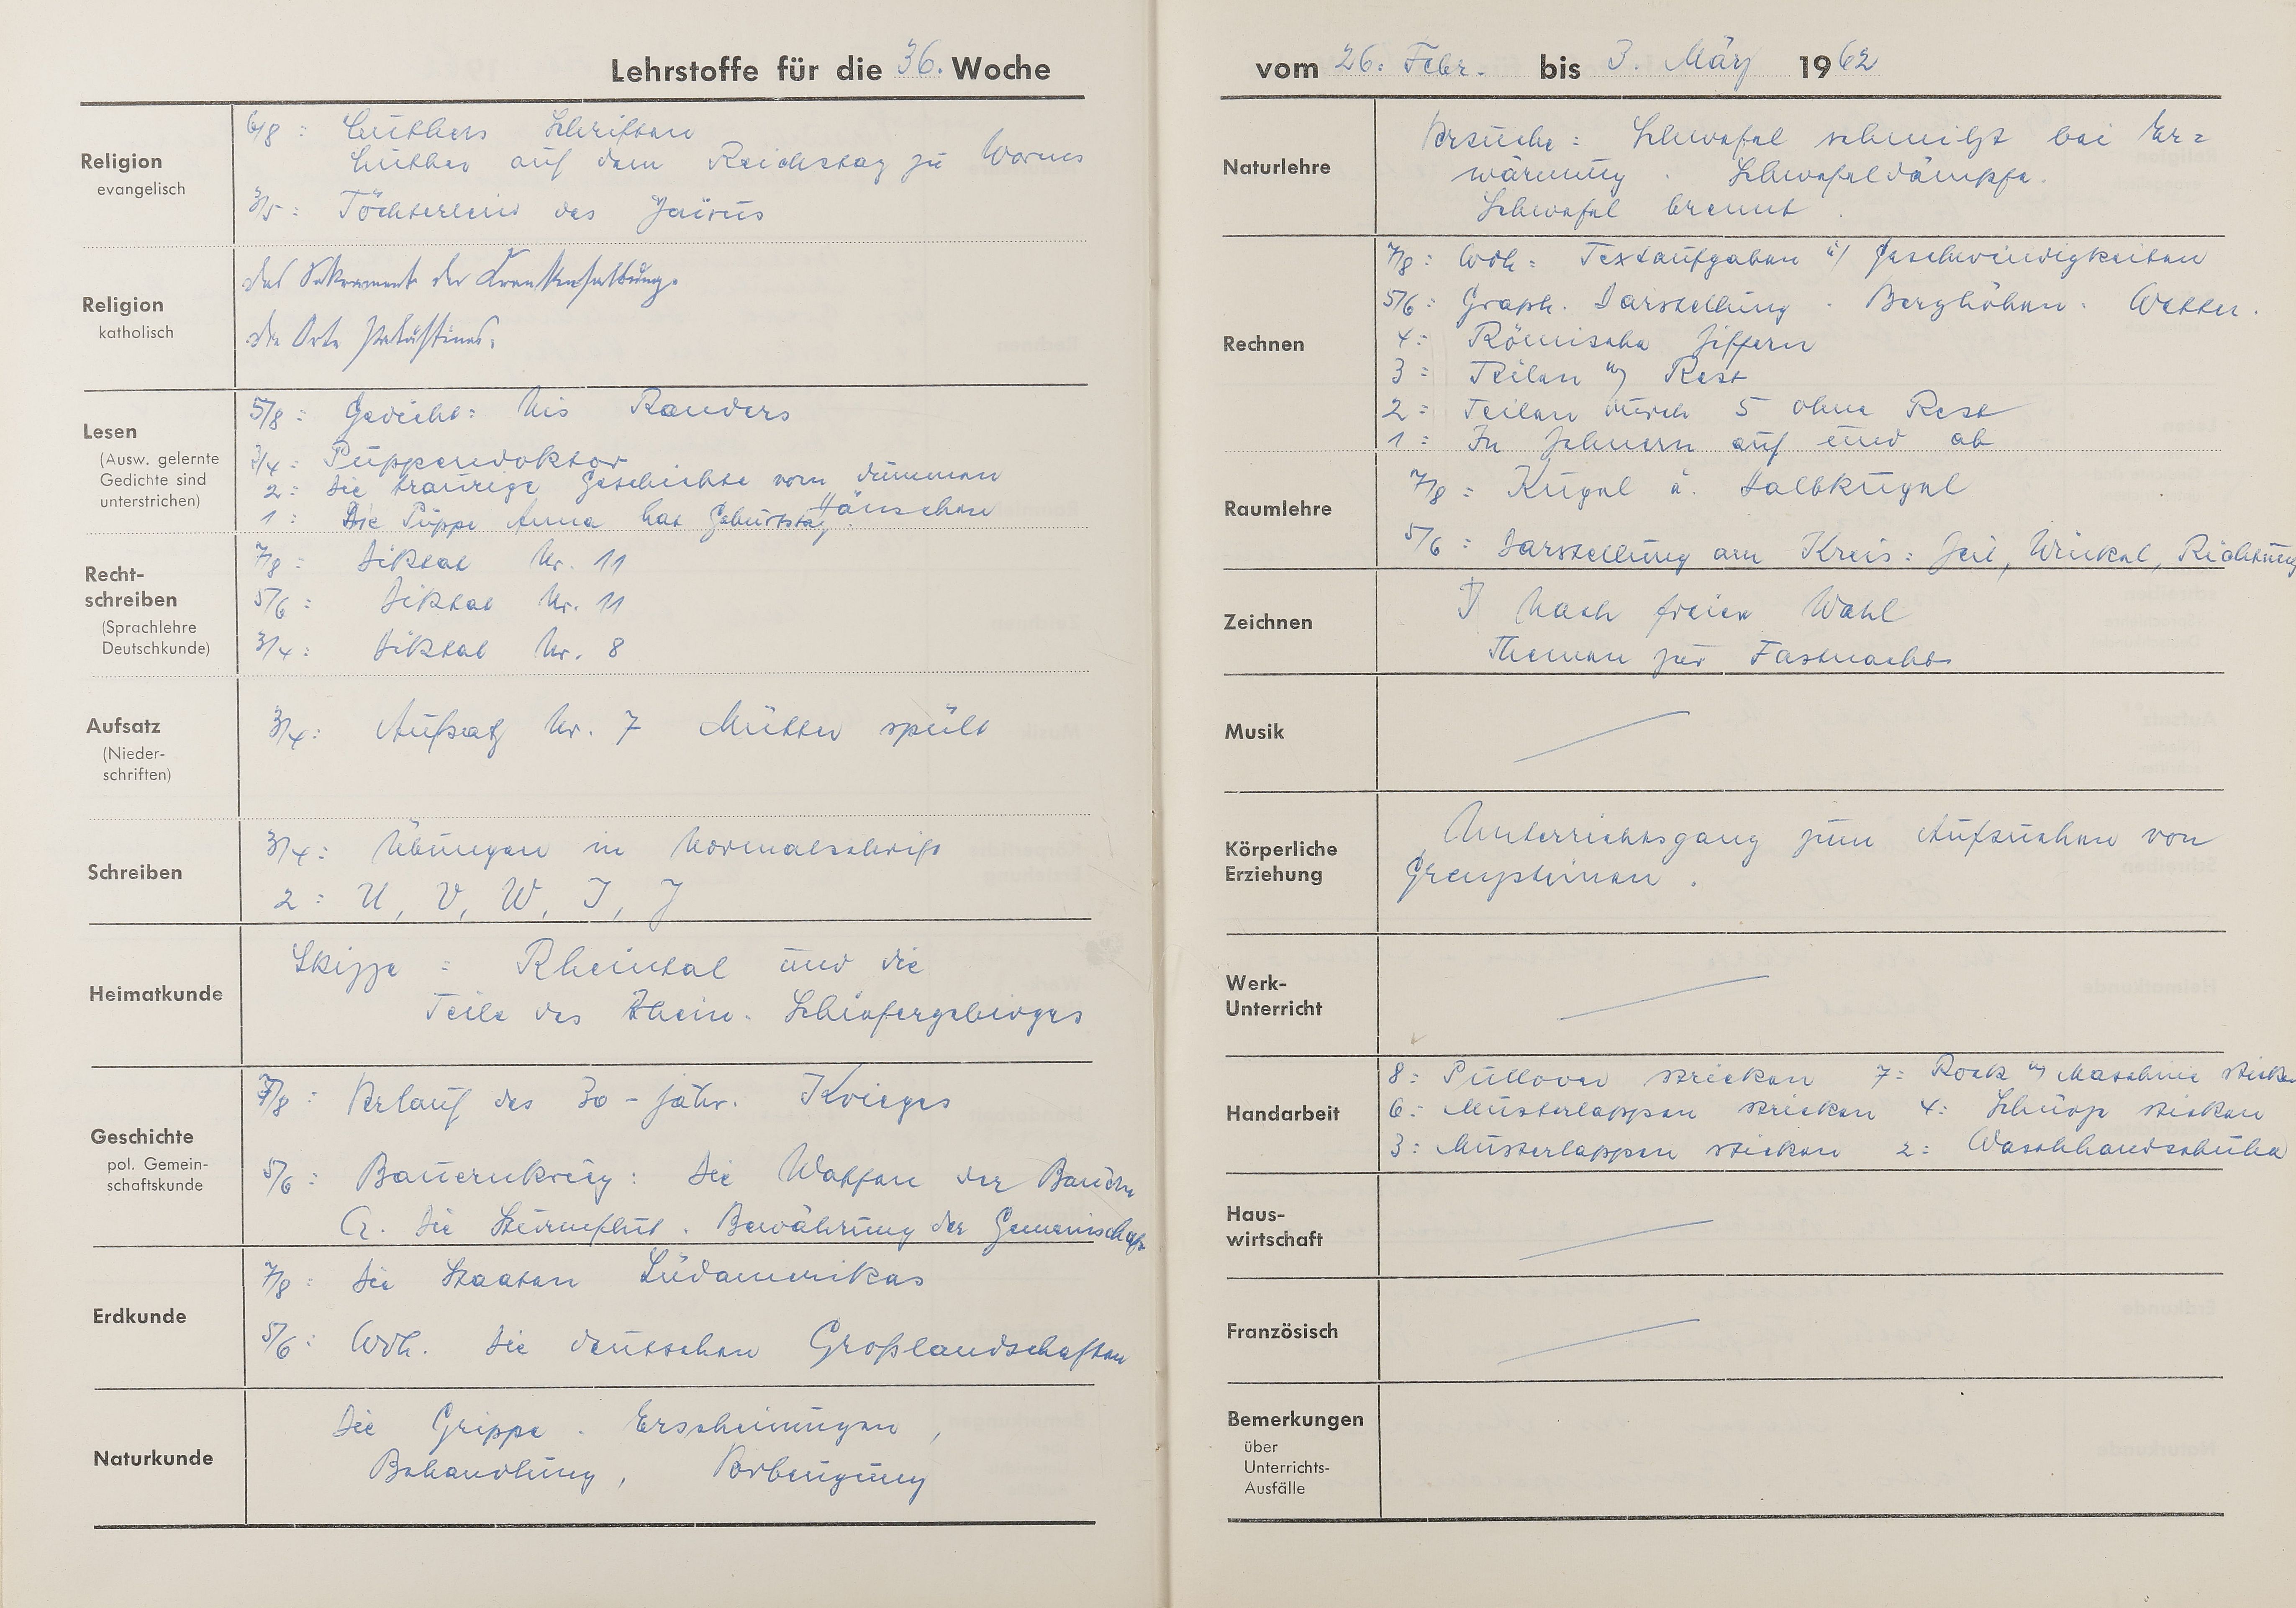 Lehrstoffe für die 36. Woche
Religion
evangelisch
6/8 : Luthers Schriften
Luther auf dem Reichstag zu Worms
3/5 : Töchterlein des Jairus
Religion
katholisch
Das Sakrament der Krankensalbung.
Die Orte Palästinas.
Lesen
(Ausw. gelernte
Gedichte sind
unterstrichen)
5/8 : Gedicht : Nis Randers
3/4 : Puppendoktor
2 : Die traurige Geschichte vom dummen
Hänschen
1 : Die Puppe Anna hat Geburtstag.
Recht-
schreiben
(Sprachlehre
Deutschkunde)
7/8 : Diktat Nr. 11
5/6 : Diktat Nr. 11
3/4 : Diktat Nr. 8
Aufsatz
(Nieder-
schriften)
3/4 : Aufsatz Nr. 7 Mutter spült
Schreiben
3/4 : Übungen in Normalschrift
2 : U, V, W, I, J
Heimatkunde
Skizze : Rheintal und die
Teile des Rhein. Schiefergebirges
Geschichte
pol. Gemein-
schaftskunde
7/8 : Verlauf des 30-jähr. Krieges
5/6 : Bauernkrieg : Die Waffen der Bauern
G. Die Sturmflut. Bewährung der Gemeinschaft
Erdkunde
7/8 : Die Staaten Südamerikas
5/6 : Wdh. Die deutschen Großlandschaften
Naturkunde
Die Grippe. Erscheinungen,
Behandlung, Vorbeugung
vom 26. Febr. bis 3. März 1962
Naturlehre
Versuche : Schwefel schmilzt bei Er=
wärmung. Schwefeldämpfe.
Schwefel brennt.
Rechnen
7/8 : Wdh : Textaufgaben m/ Geschwindigkeiten
5/6 : Graph. Darstellung. Berghöhen. Wetter.
4 : Römische Ziffern
3 : Teilen m/ Rest
2 : Teilen durch 5 ohne Rest
1 : In Zehnern auf und ab
Raumlehre
7/8 : Kugel u. Halbkugel
5/6 : Darstellung am Kreis : Zeit, Winkel, Richtung
Zeichnen
Nach freier Wahl
Themen zur Fastnacht
Musik
Körperliche
Erziehung
Unterrichtsgang zum Aufsuchen von
Grenzsteinen.
Werk-
Unterricht
Handarbeit
8 : Pullover stricken 7 : Rock m/ Maschine sticken
6 : Musterlappen stricken 4 : Schürze sticken
3 : Musterlappen sticken 2 : Waschhandschuhe
Haus-
wirtschaft
Französisch
Bemerkungen
über
Unterrichts-
Ausfälle